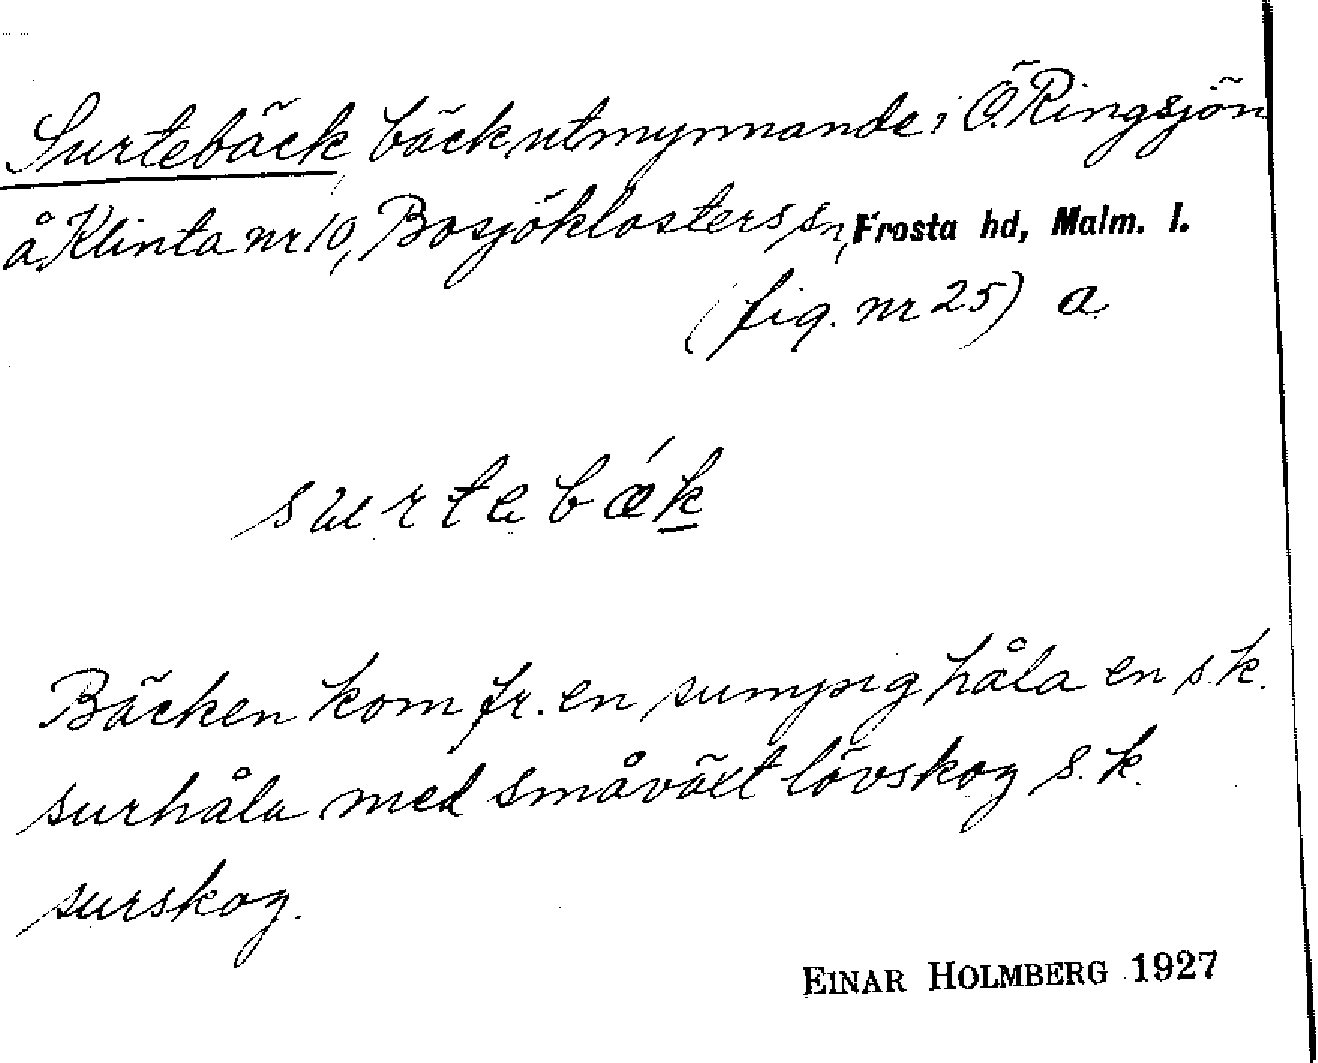 Surtebäck, bäck utmynnande i Ö. Ringsjön
å Klinta nr 10, Bosjöklosters sn, Frosta hd, Malm. l.
(fig. nr 25) a
surtebǽk
Bäcken kom fr. en sumpig håla en s.k.
surhåla med småväxt lövskog s.k.
surskog.
EINAR HOLMBERG 1927